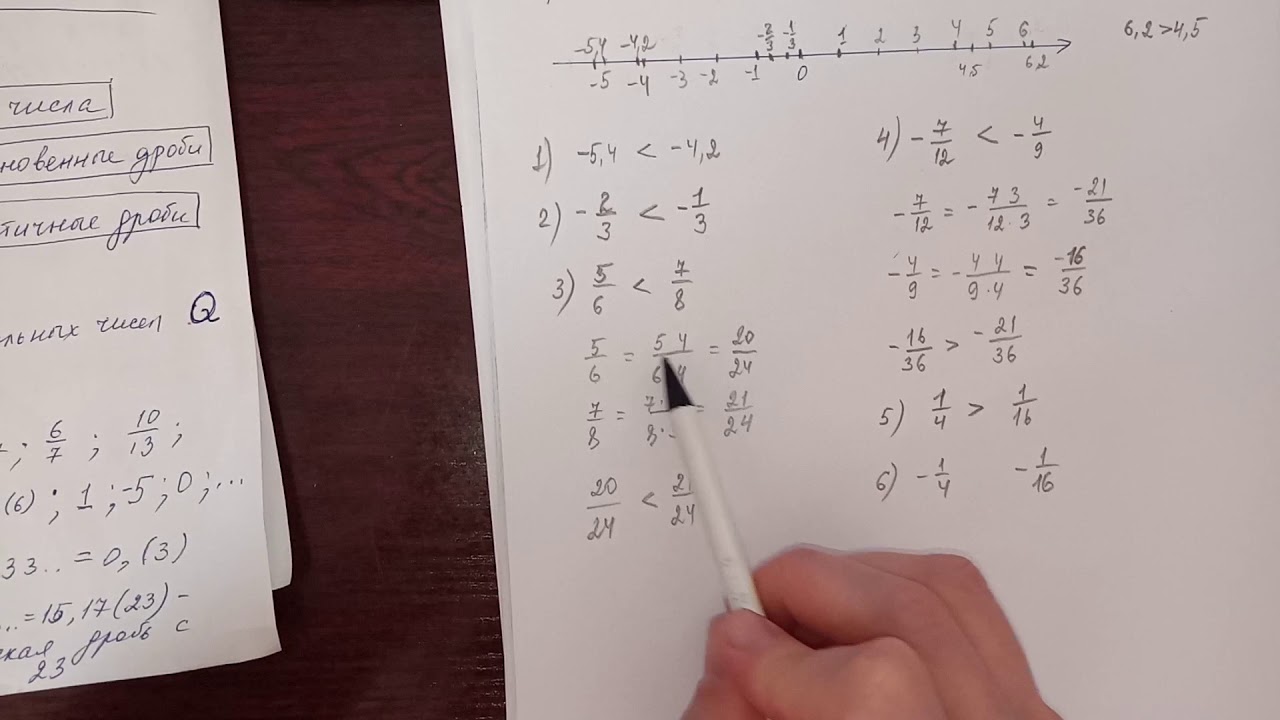 числа
новенные дроби
тичные дроби
льных чисел Q
; 6/7 ; 10/13 ;
(6) ; 1 ; -5 ; 0 ; ...
33.. = 0,(3)
.. = 15,17(23) -
ская дробь с
23
-5,4 -4,2 -2/3 -1/3 1 2 3 4 5 6
-5 -4 -3 -2 -1 0 4,5 6,2
6,2 > 4,5
1) -5,4 < -4,2
2) -2/3 < -1/3
3) 5/6 < 7/8
5/6 = 5 4/6 4 = 20/24
7/8 = 7·/8· = 21/24
20/24 < 21/24
4) -7/12 < -4/9
-7/12 = -7 3/12·3 = -21/36
-4/9 = -4 4/9·4 = -16/36
-16/36 > -21/36
5) 1/4 > 1/16
6) -1/4 -1/16